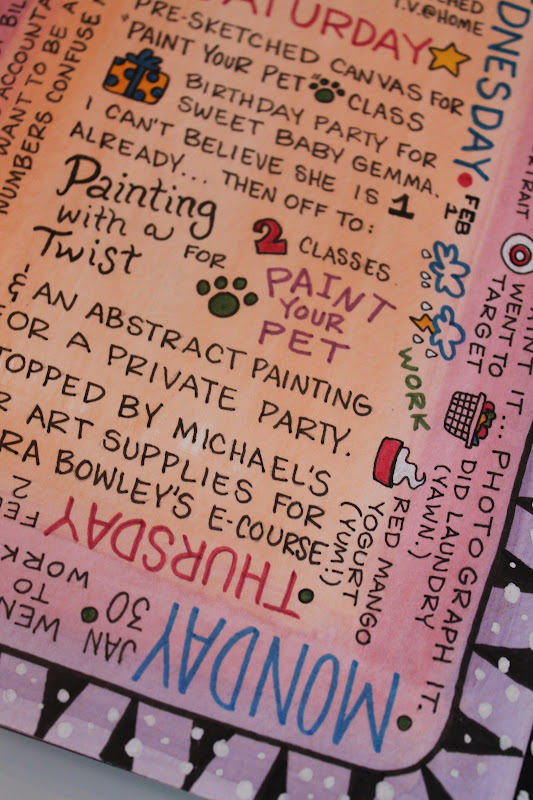 SATURDAY
T.V.@HOME
PRE-SKETCHED CANVAS FOR
"PAINT YOUR PET" CLASS
BIRTHDAY PARTY FOR
SWEET BABY GEMMA.
I CAN'T BELIEVE SHE IS 1
ALREADY... THEN OFF TO:
Painting
with a
Twist
FOR
2 CLASSES
PAINT
YOUR
PET
& AN ABSTRACT PAINTING
FOR A PRIVATE PARTY.
STOPPED BY MICHAEL'S
ART SUPPLIES FOR
BOWLEY'S E-COURSE.
THURSDAY
FEB
2
MONDAY
JAN
30
WENT
TO
WORK
WEDNESDAY
FEB
1
WORK
RED MANGO
YOGURT
(YUM!)
WENT TO
TARGET
DID LAUNDRY
(YAWN.)
IT... PHOTOGRAPH IT.
ACCOUNTA
WANT TO BE A
NUMBERS CONFUSE